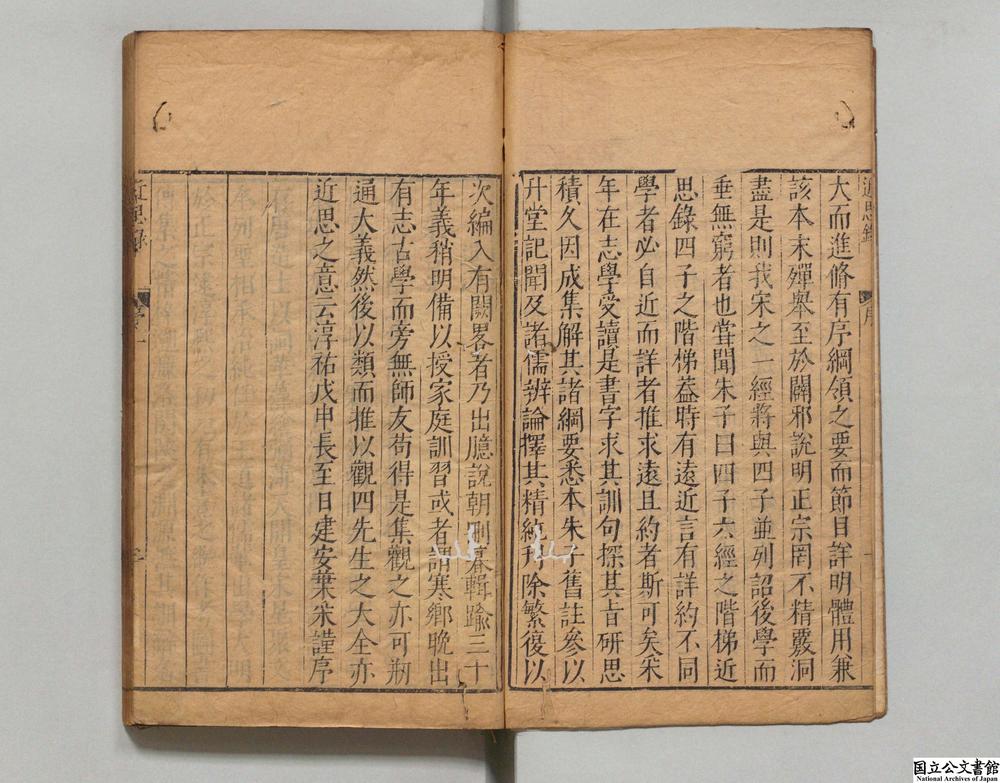 近思錄
序
大而進修有序綱領之要而節目詳明體用兼
該本末殫舉至於闢邪說明正宗罔不精覈洞
盡是則我宋之一經將與四子並列詔後學而
垂無窮者也甞聞朱子曰四子六經之階梯近
思錄四子之階梯葢時有遠近言有詳約不同
學者必自近而詳者推求遠且約者斯可矣采
年在志學受讀是書字求其訓句探其旨研思
積久因成集解其諸綱要悉本朱子舊註參以
升堂記聞及諸儒辨論擇其精純刋除繁復以
次編入有闕畧者乃出臆說朝刪暮輯踰三十
年義稍明備以授家庭訓習或者謂寒鄉晚出
有志古學而旁無師友苟得是集觀之亦可刱
通大義然後以類而推以觀四先生之大全亦
近思之意云淳祐戊申長至日建安葉采謹序
近思錄
序
一
国立公文書館
National Archives of Japan